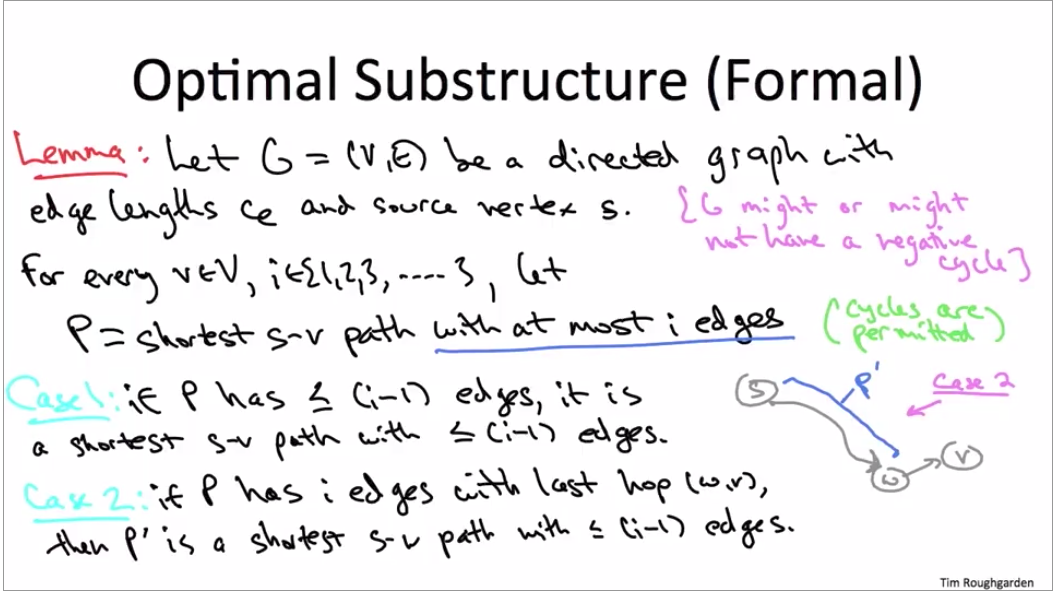 Optimal Substructure (Formal)
Lemma: Let G = (V,E) be a directed graph with
edge lengths ce and source vertex s.
{G might or might
not have a negative
cycle}
For every v∈V, i∈{1,2,3, .....}, let
P = shortest s-v path with at most i edges
(cycles are
permitted)
Case 1: if P has ≤ (i-1) edges, it is
a shortest s-v path with ≤ (i-1) edges.
Case 2: if P has i edges with last hop (w,v),
then P' is a shortest s-w path with ≤ (i-1) edges.
s
P'
Case 2
w
v
Tim Roughgarden